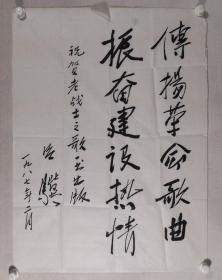 傳揚革命歌曲
振奋建设热情
祝贺老战士之歌出版
吕骥
一九八七年二月